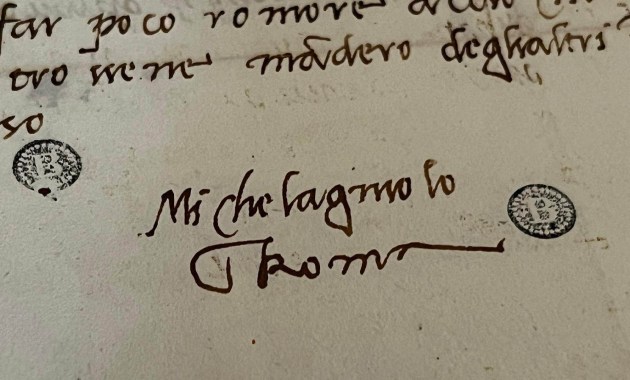 far poco romore
tro ve ne mãdero deglialtri
so
Michelagniolo
Roma